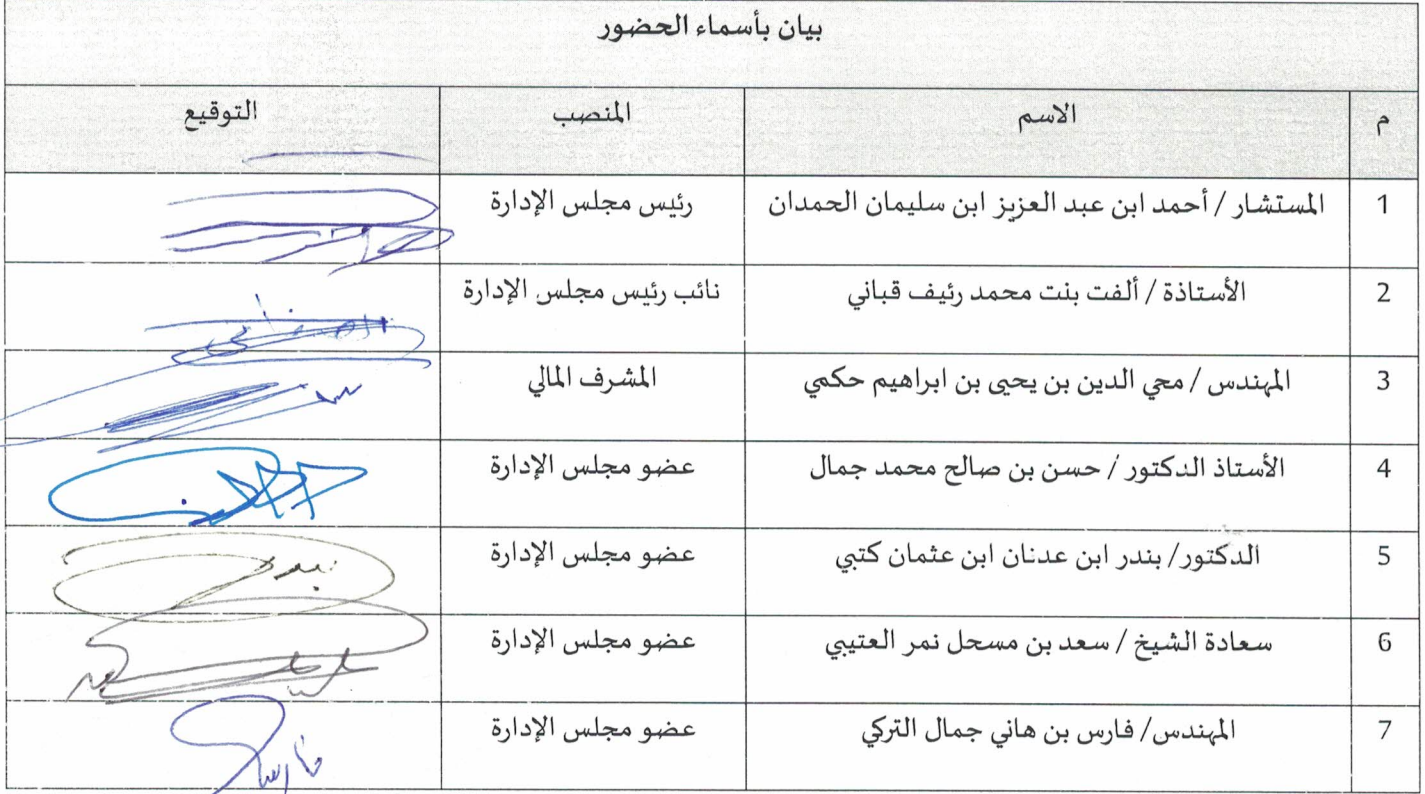 بيان بأسماء الحضور
م الاسم المنصب التوقيع
1 المستشار / أحمد ابن عبد العزيز ابن سليمان الحمدان رئيس مجلس الإدارة
2 الأستاذة / ألفت بنت محمد رئيف قباني نائب رئيس مجلس الإدارة
3 المهندس / محي الدين بن يحيى بن ابراهيم حكمي المشرف المالي
4 الأستاذ الدكتور / حسن بن صالح محمد جمال عضو مجلس الإدارة
5 الدكتور/ بندر ابن عدنان ابن عثمان كتبي عضو مجلس الإدارة بندر
6 سعادة الشيخ / سعد بن مسحل نمر العتيبي عضو مجلس الإدارة
7 المهندس/ فارس بن هاني جمال التركي عضو مجلس الإدارة فارس